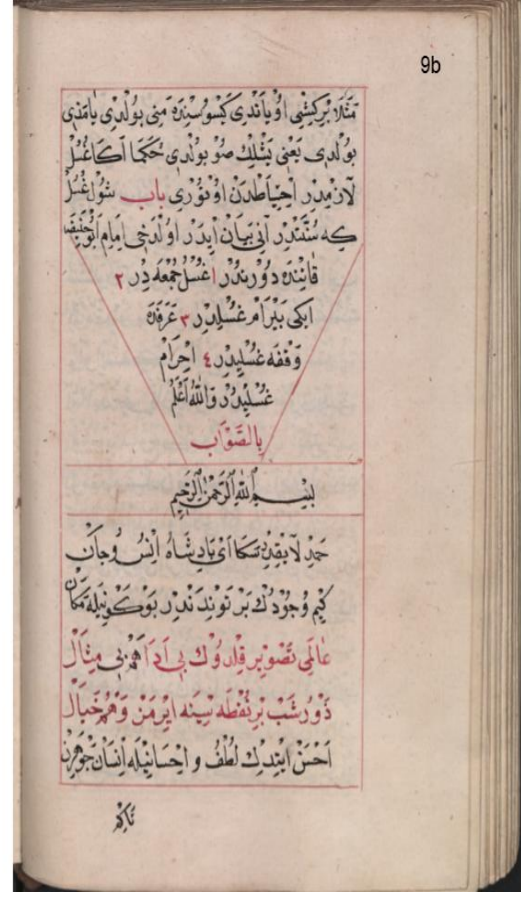 9b
مَثَلَا بِرْ كِيشِي اُوْيَاَنْدِي كَسُوسِنْدَه مَنِي بُولْدِي يَا مَذِي
بُولْدِي يَعْنِي يَشْلِكْ صُوْ بُولْدِي حُكْمًا اَكَا غُسْلْ
لَازِمْدِرْ اِحْتِيَاطْدَنْ اُوْتُوْرِي بَابْ شُولْ غُسْلْ
كِه سُنَّتْدِرْ اَنِي بَيَانْ اِيدَرْ اَوَّلْدَخِي اِمَامِ اَبُو حَنِيفَه
قَاتِنْدَه دُوْرْتْدُرْ ١ غُسْلِ جُمْعَه دِرْ ٢
اِيكِي بَيْرَامْ غُسْلِيدِرْ ٣ عَرَفَه دَه
وَقْفَه غُسْلِيدِرْ ٤ اِحْرَامْ
غُسْلِيدُرْ وَاللّٰهُ اَعْلَمُ
بِالصَّوَابْ
بِسْمِ ٱللّٰهِ ٱلرَّحْمٰنِ ٱلرَّحِيمِ
حَمْدِ لَايِقْدِرْ سَكَا اَىْ پَادِشَاهِ اِنْسُ وُجَانْ
كِيمْ وُجُودُكْ بَرْتَوِنْدَنْدِرْ بُو كَوْنِيلَه مَكَانْ
عَالَمِي تَصْوِيرْ قِلْدُوكْ بِي اَدَاهَمْ بِي مِثَالْ
ذَوُرْشَبْ بِرْ نُقْطَه سِينَه اِيرْمَزْ وَهْمُ خَيَالْ
اَحْسَنْ اِيتْدِكْ لُطْفُ و اِحْسَانِيلَه اِنْسَانْ جَوْهَرِنْ
تَاكِمْ